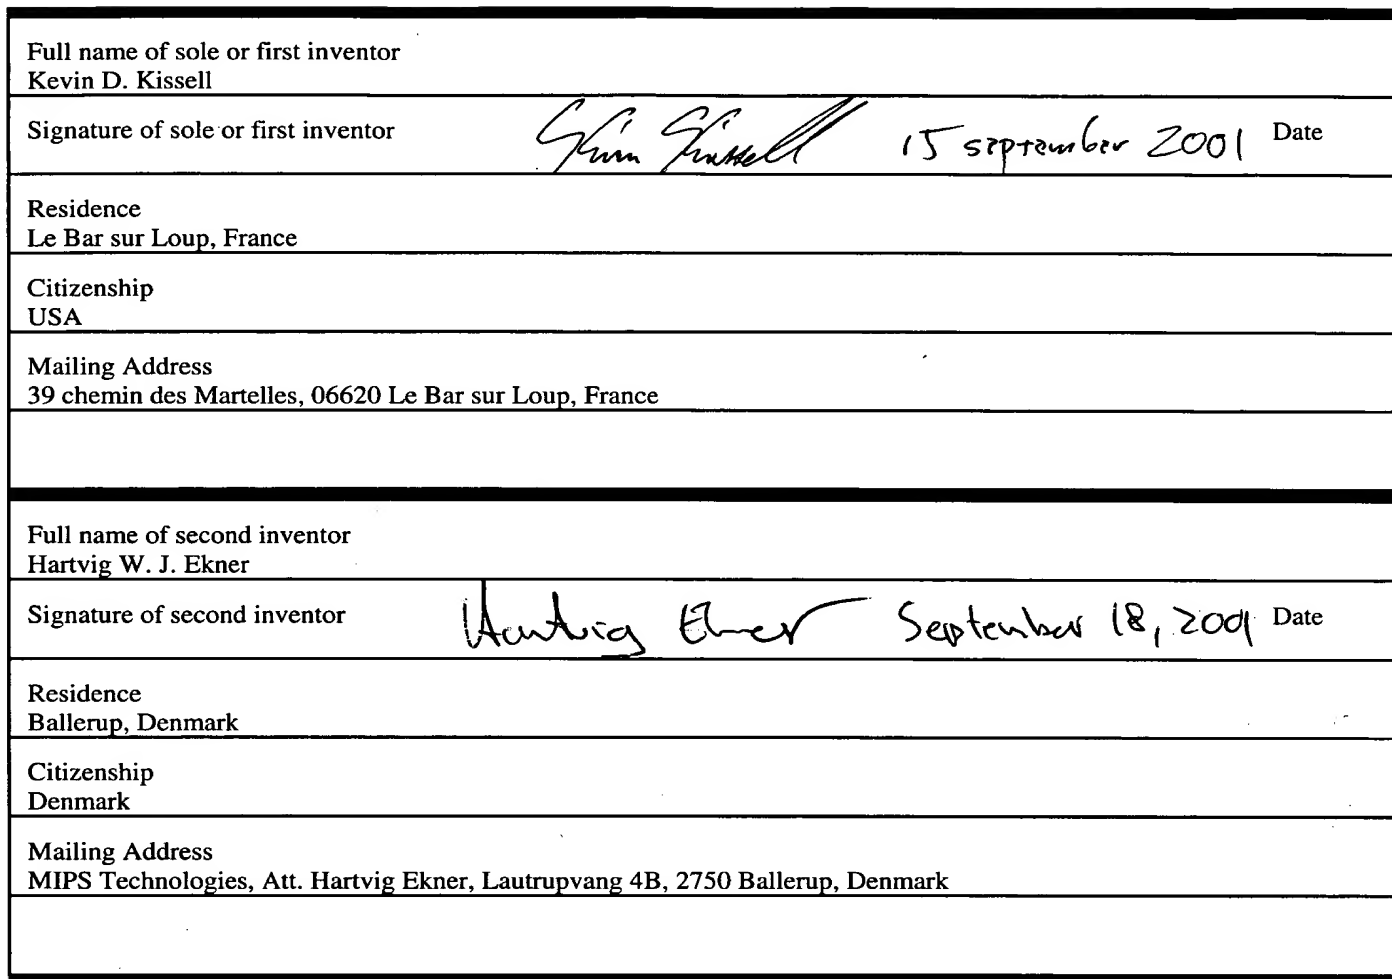 Full name of sole or first inventor
Kevin D. Kissell
Signature of sole or first inventor Kevin Kissell 15 september 2001 Date
Residence
Le Bar sur Loup, France
Citizenship
USA
Mailing Address
39 chemin des Martelles, 06620 Le Bar sur Loup, France
Full name of second inventor
Hartvig W. J. Ekner
Signature of second inventor Hartvig Ekner September 18, 2001 Date
Residence
Ballerup, Denmark
Citizenship
Denmark
Mailing Address
MIPS Technologies, Att. Hartvig Ekner, Lautrupvang 4B, 2750 Ballerup, Denmark